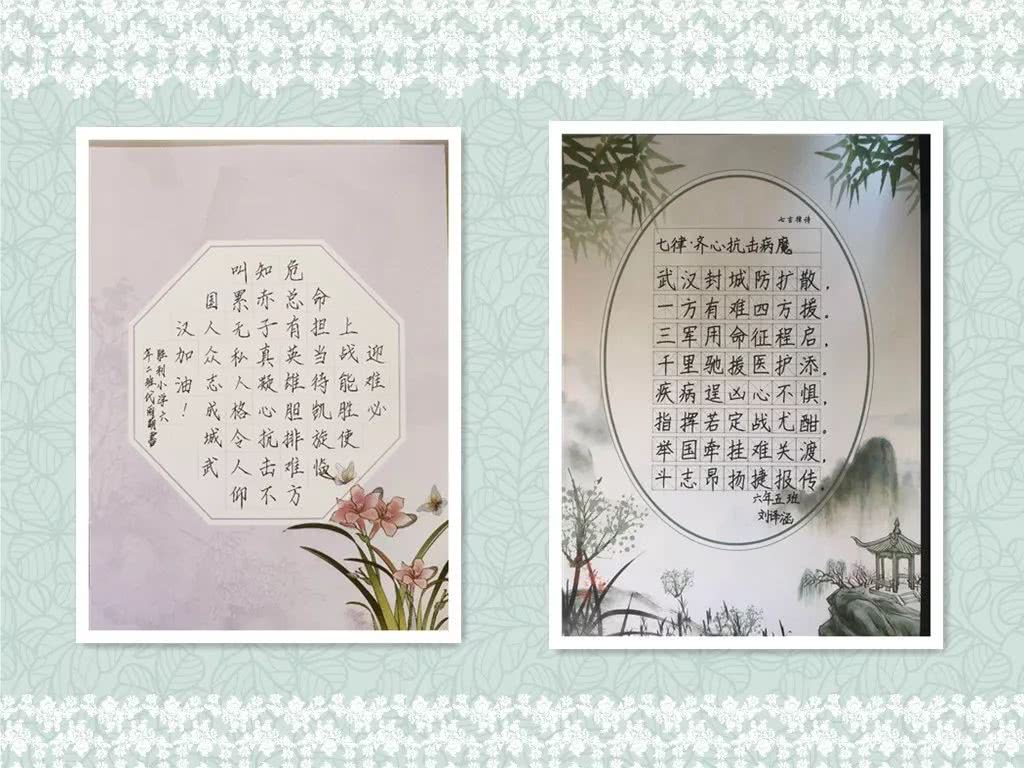 迎难必
上战能胜使
命担当待凯旋悔
危总有英雄胆排难方
知亦子真凝心抗击不
叫累无私人格令人仰
国人众志成城武
汉加油！
胜利小学六
年二班代萌书
七言律诗
七律·齐心抗击病魔
武汉封城防扩散，
一方有难四方援。
三军用命征程启，
千里驰援医护添。
疾病逞凶心不惧，
指挥若定战尤酣。
举国牵挂难关渡，
斗志昂扬捷报传。
六年五班
刘译涵